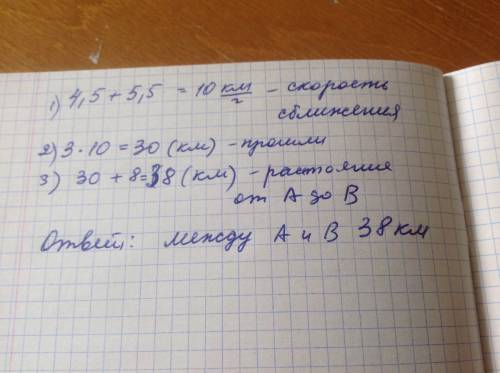 1) 4,5 + 5,5 = 10 км/г - скорость
сближения
2) 3 · 10 = 30 (км) - прошли
3) 30 + 8 = 38 (км) - растояние
от А до В
Ответ: между А и В 38 км